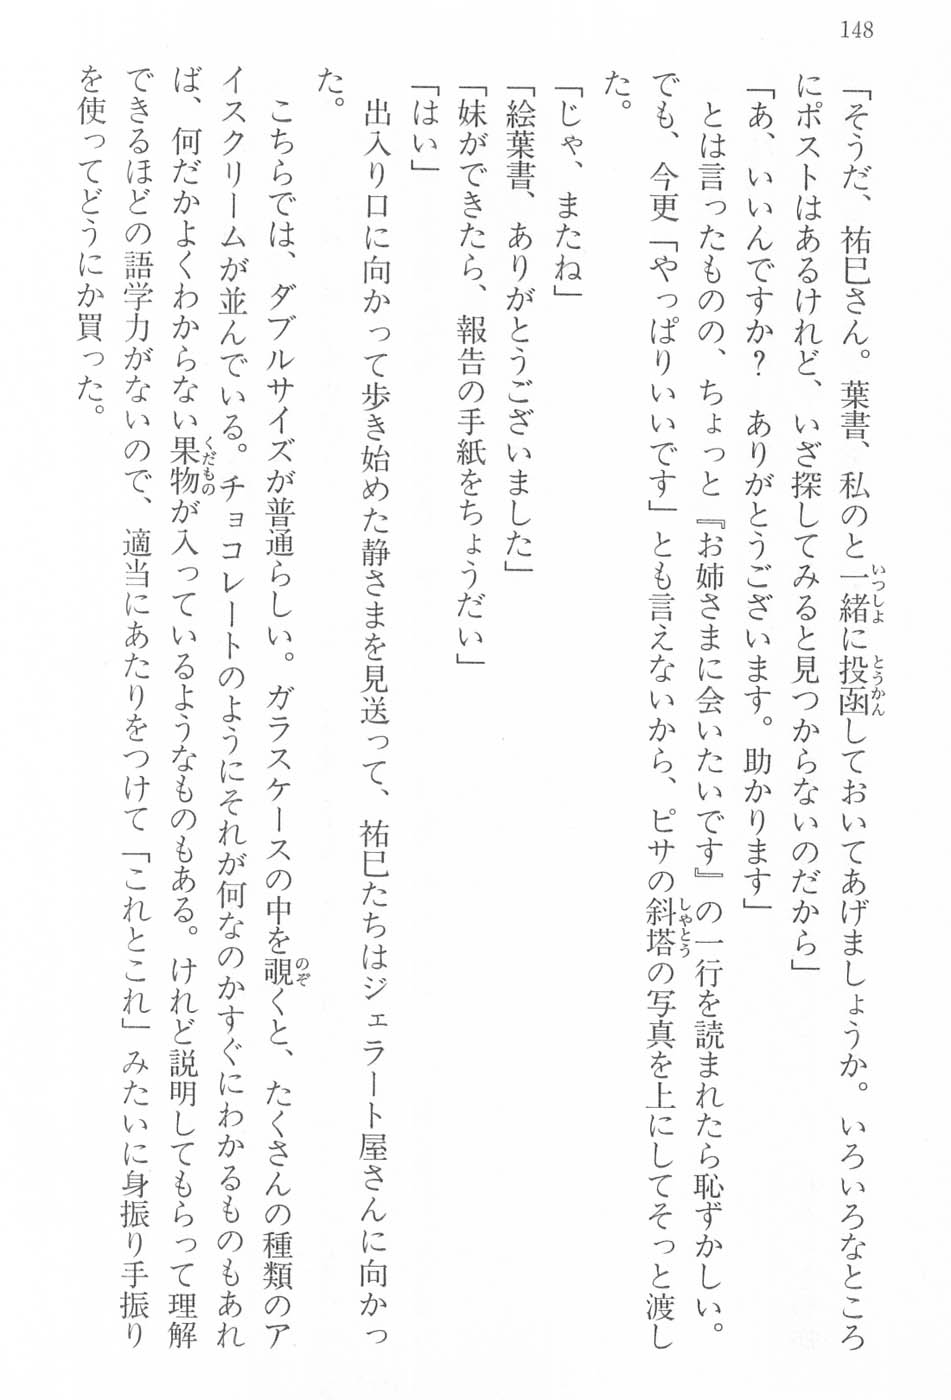 148
「そうだ、祐巳さん。葉書、私のと一緒に投函しておいてあげましょうか。いろいろなところ
にポストはあるけれど、いざ探してみると見つからないのだから」
「あ、いいんですか？　ありがとうございます。助かります」
　とは言ったものの、ちょっと『お姉さまに会いたいです』の一行を読まれたら恥ずかしい。
でも、今更「やっぱりいいです」とも言えないから、ピサの斜塔の写真を上にしてそっと渡し
た。
「じゃ、またね」
「絵葉書、ありがとうございました」
「妹ができたら、報告の手紙をちょうだい」
「はい」
　出入り口に向かって歩き始めた静さまを見送って、祐巳たちはジェラート屋さんに向かっ
た。
　こちらでは、ダブルサイズが普通らしい。ガラスケースの中を覗くと、たくさんの種類のア
イスクリームが並んでいる。チョコレートのようにそれが何なのかすぐにわかるものもあれ
ば、何だかよくわからない果物が入っているようなものもある。けれど説明してもらって理解
できるほどの語学力がないので、適当にあたりをつけて「これとこれ」みたいに身振り手振り
を使ってどうにか買った。